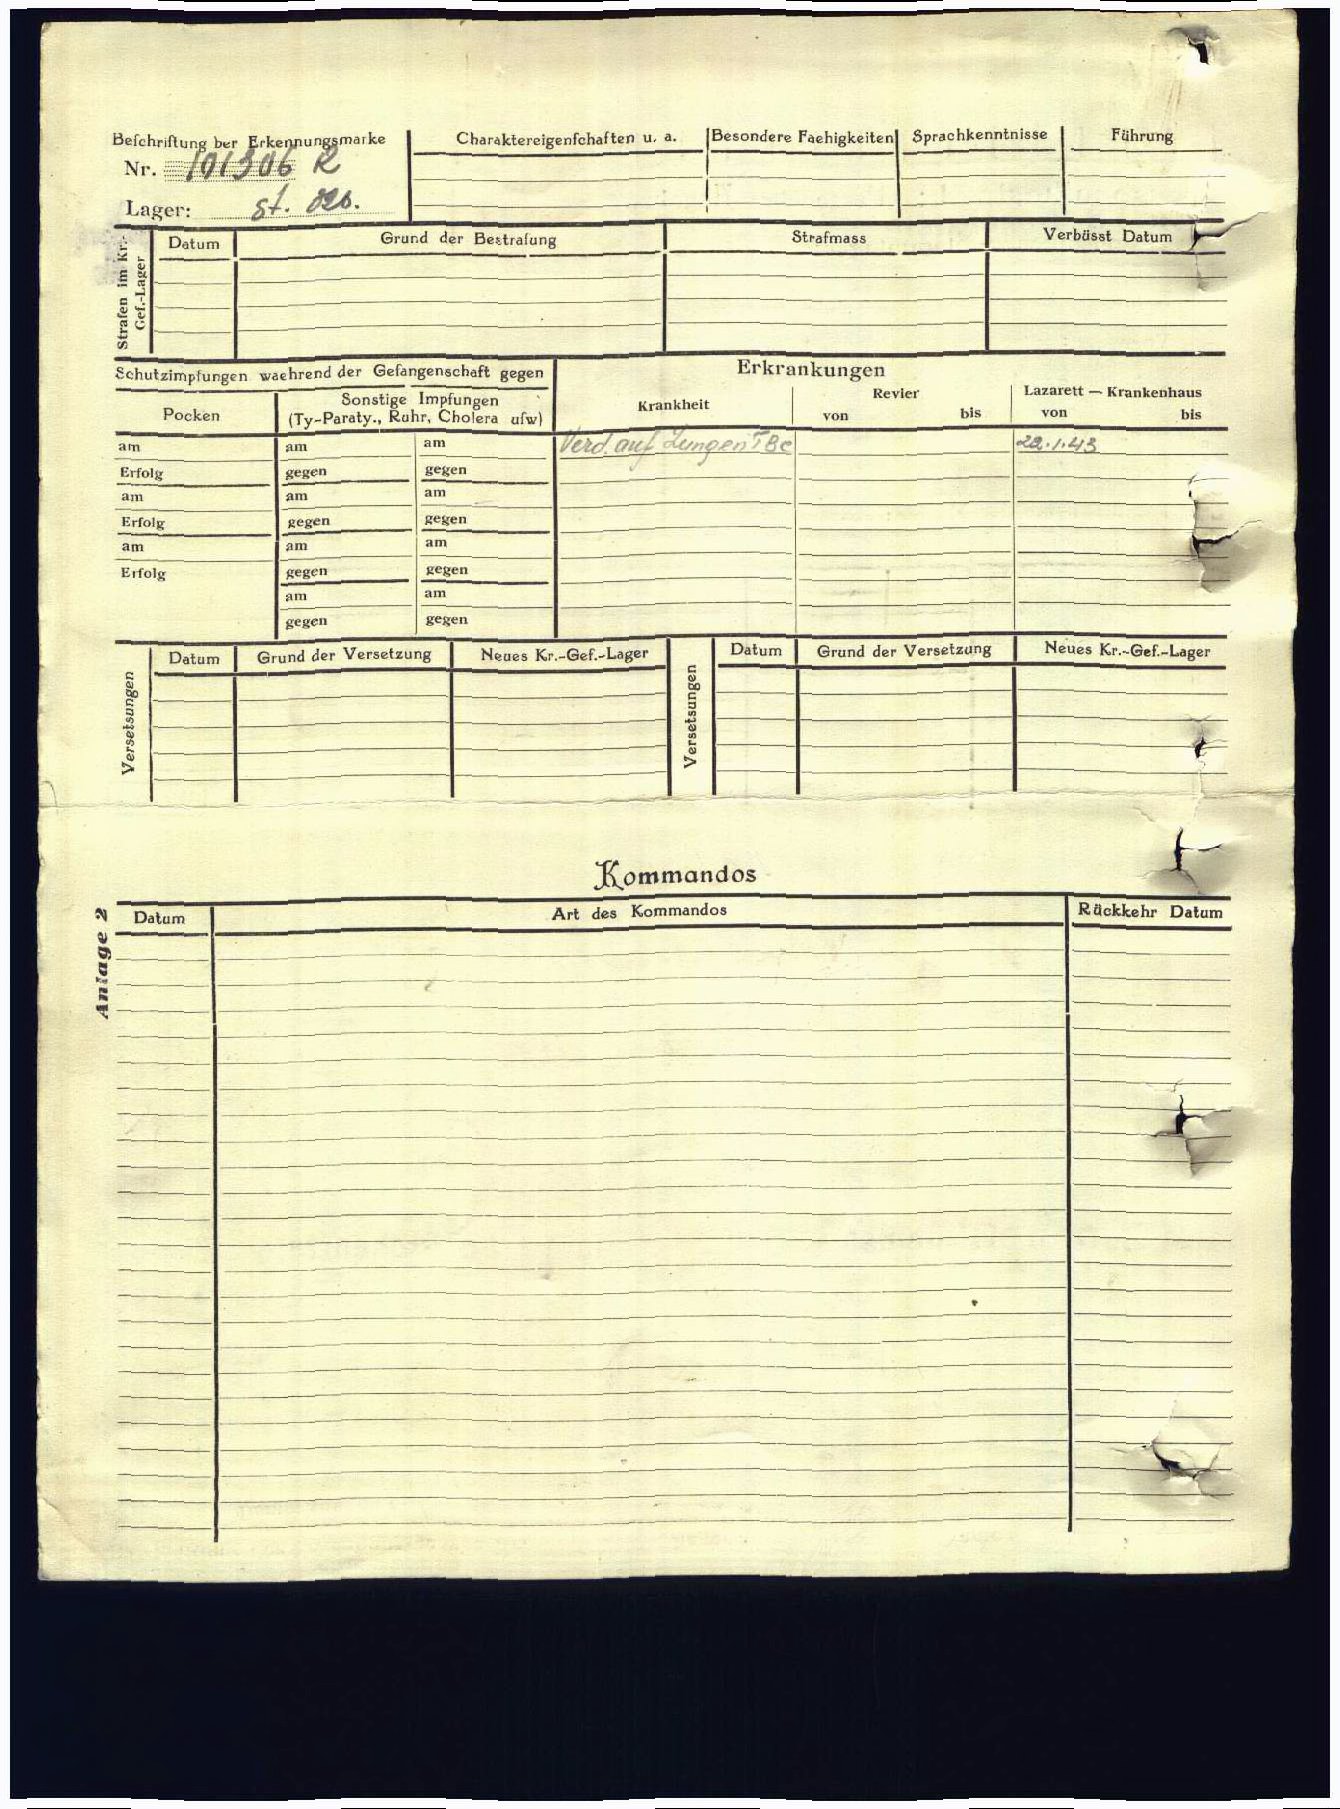 Beschriftung der Erkennungsmarke
Nr. 101306 R
Lager: St.
Charaktereigenschaften u. a.
Besondere Faehigkeiten
Sprachkenntnisse
Führung
Strafen im Kr.-
Gef.-Lager
Datum
Grund der Bestrafung
Strafmass
Verbüsst Datum
Schutzimpfungen waehrend der Gefangenschaft gegen
Pocken
Sonstige Impfungen
(Ty-Paraty., Ruhr, Cholera usw)
am
Erfolg
am
Erfolg
am
Erfolg
am am
gegen gegen
am am
gegen gegen
am am
gegen gegen
am am
gegen gegen
Erkrankungen
Krankheit
Revier
von bis
Lazarett — Krankenhaus
von bis
Verd. auf Lungen TBc 22.1.43
Versetsungen
Datum
Grund der Versetzung
Neues Kr.-Gef.-Lager
Versetsungen
Datum
Grund der Versetzung
Neues Kr.-Gef.-Lager
Kommandos
Anlage 2
Datum
Art des Kommandos
Rückkehr Datum